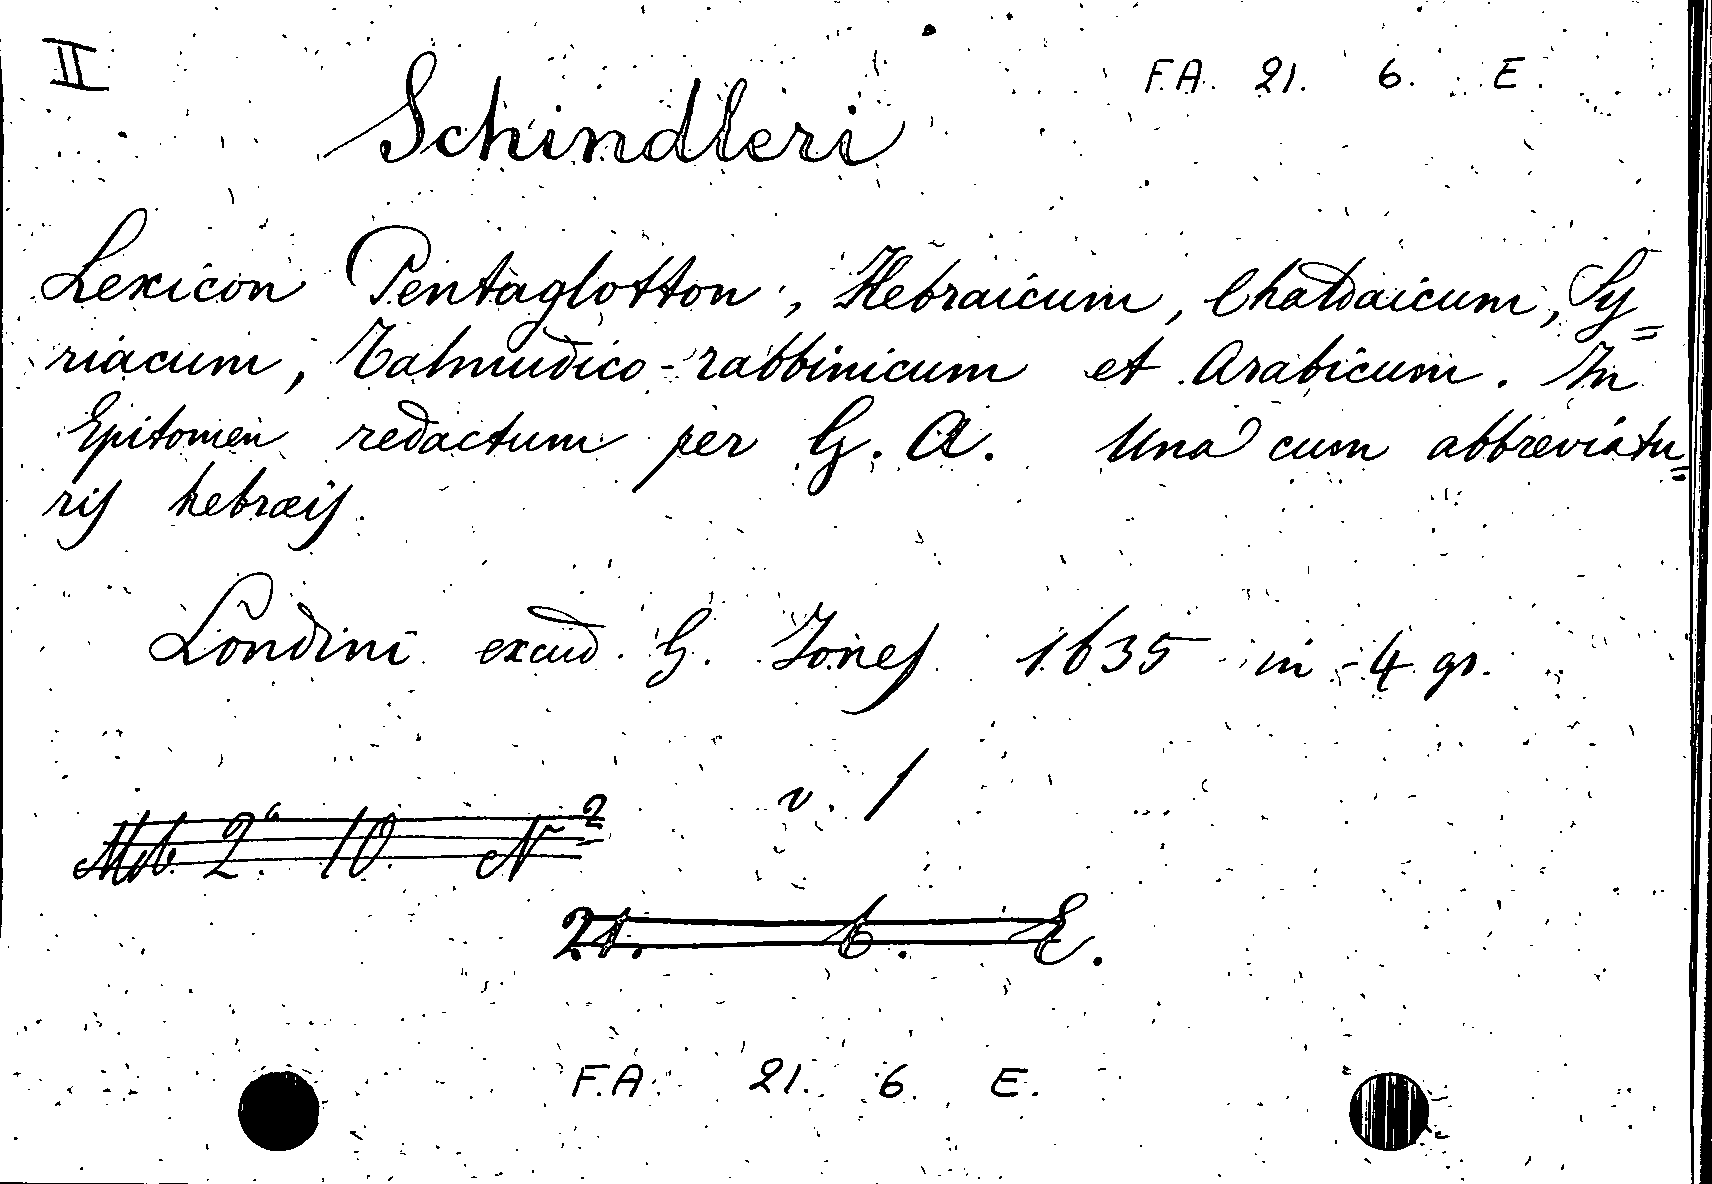 II
F.A. 21. 6. E.
Schindleri
Lexicon Pentaglotton, Hebraicum, Chaldaicum, Sy=
riacum, Talmudico-rabbinicum et Arabicum. In
Epitomen redactum per G. A. Una cum abbreviatu=
ris hebræis.
Londini excud. G. Jones 1635 in 4 gr.
v. 1
2. 10 N 2
21. 6. E.
F.A. 21. 6. E.